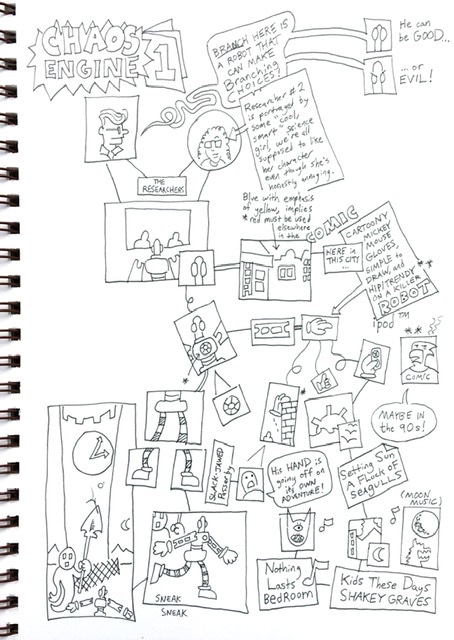 CHAOS
ENGINE
1
BRANCH HERE IS
A ROBOT THAT
CAN MAKE
Branching
CHOICES!
He can
be GOOD...
...or
EVIL!
Researcher #2
is portrayed by
some "cool,
smart" science
girl, we're all
supposed to like
her character
even though she's
honestly annoying.
THE
RESEARCHERS
Blue with emphasis
of yellow, implies
* red must be used
elsewhere
in the
COMIC
HERE IN
THIS CITY
...
CARTOONY
MICKEY
MOUSE
GLOVES,
SIMPLE to
DRAW, and
HIP/TRENDY
ON A KILLER
ROBOT
**
ipod™
2
**
COMIC
MAYBE IN
the 90s!
SLACK-JAWED
Passerby
His HAND is
going off on
its OWN
ADVENTURE!
Setting Sun
A FLOCK OF
SEAGULLS
(MOON
MUSIC)
Nothing
Lasts
BEDROOM
Kids These Days
SHAKEY GRAVES
SNEAK
SNEAK